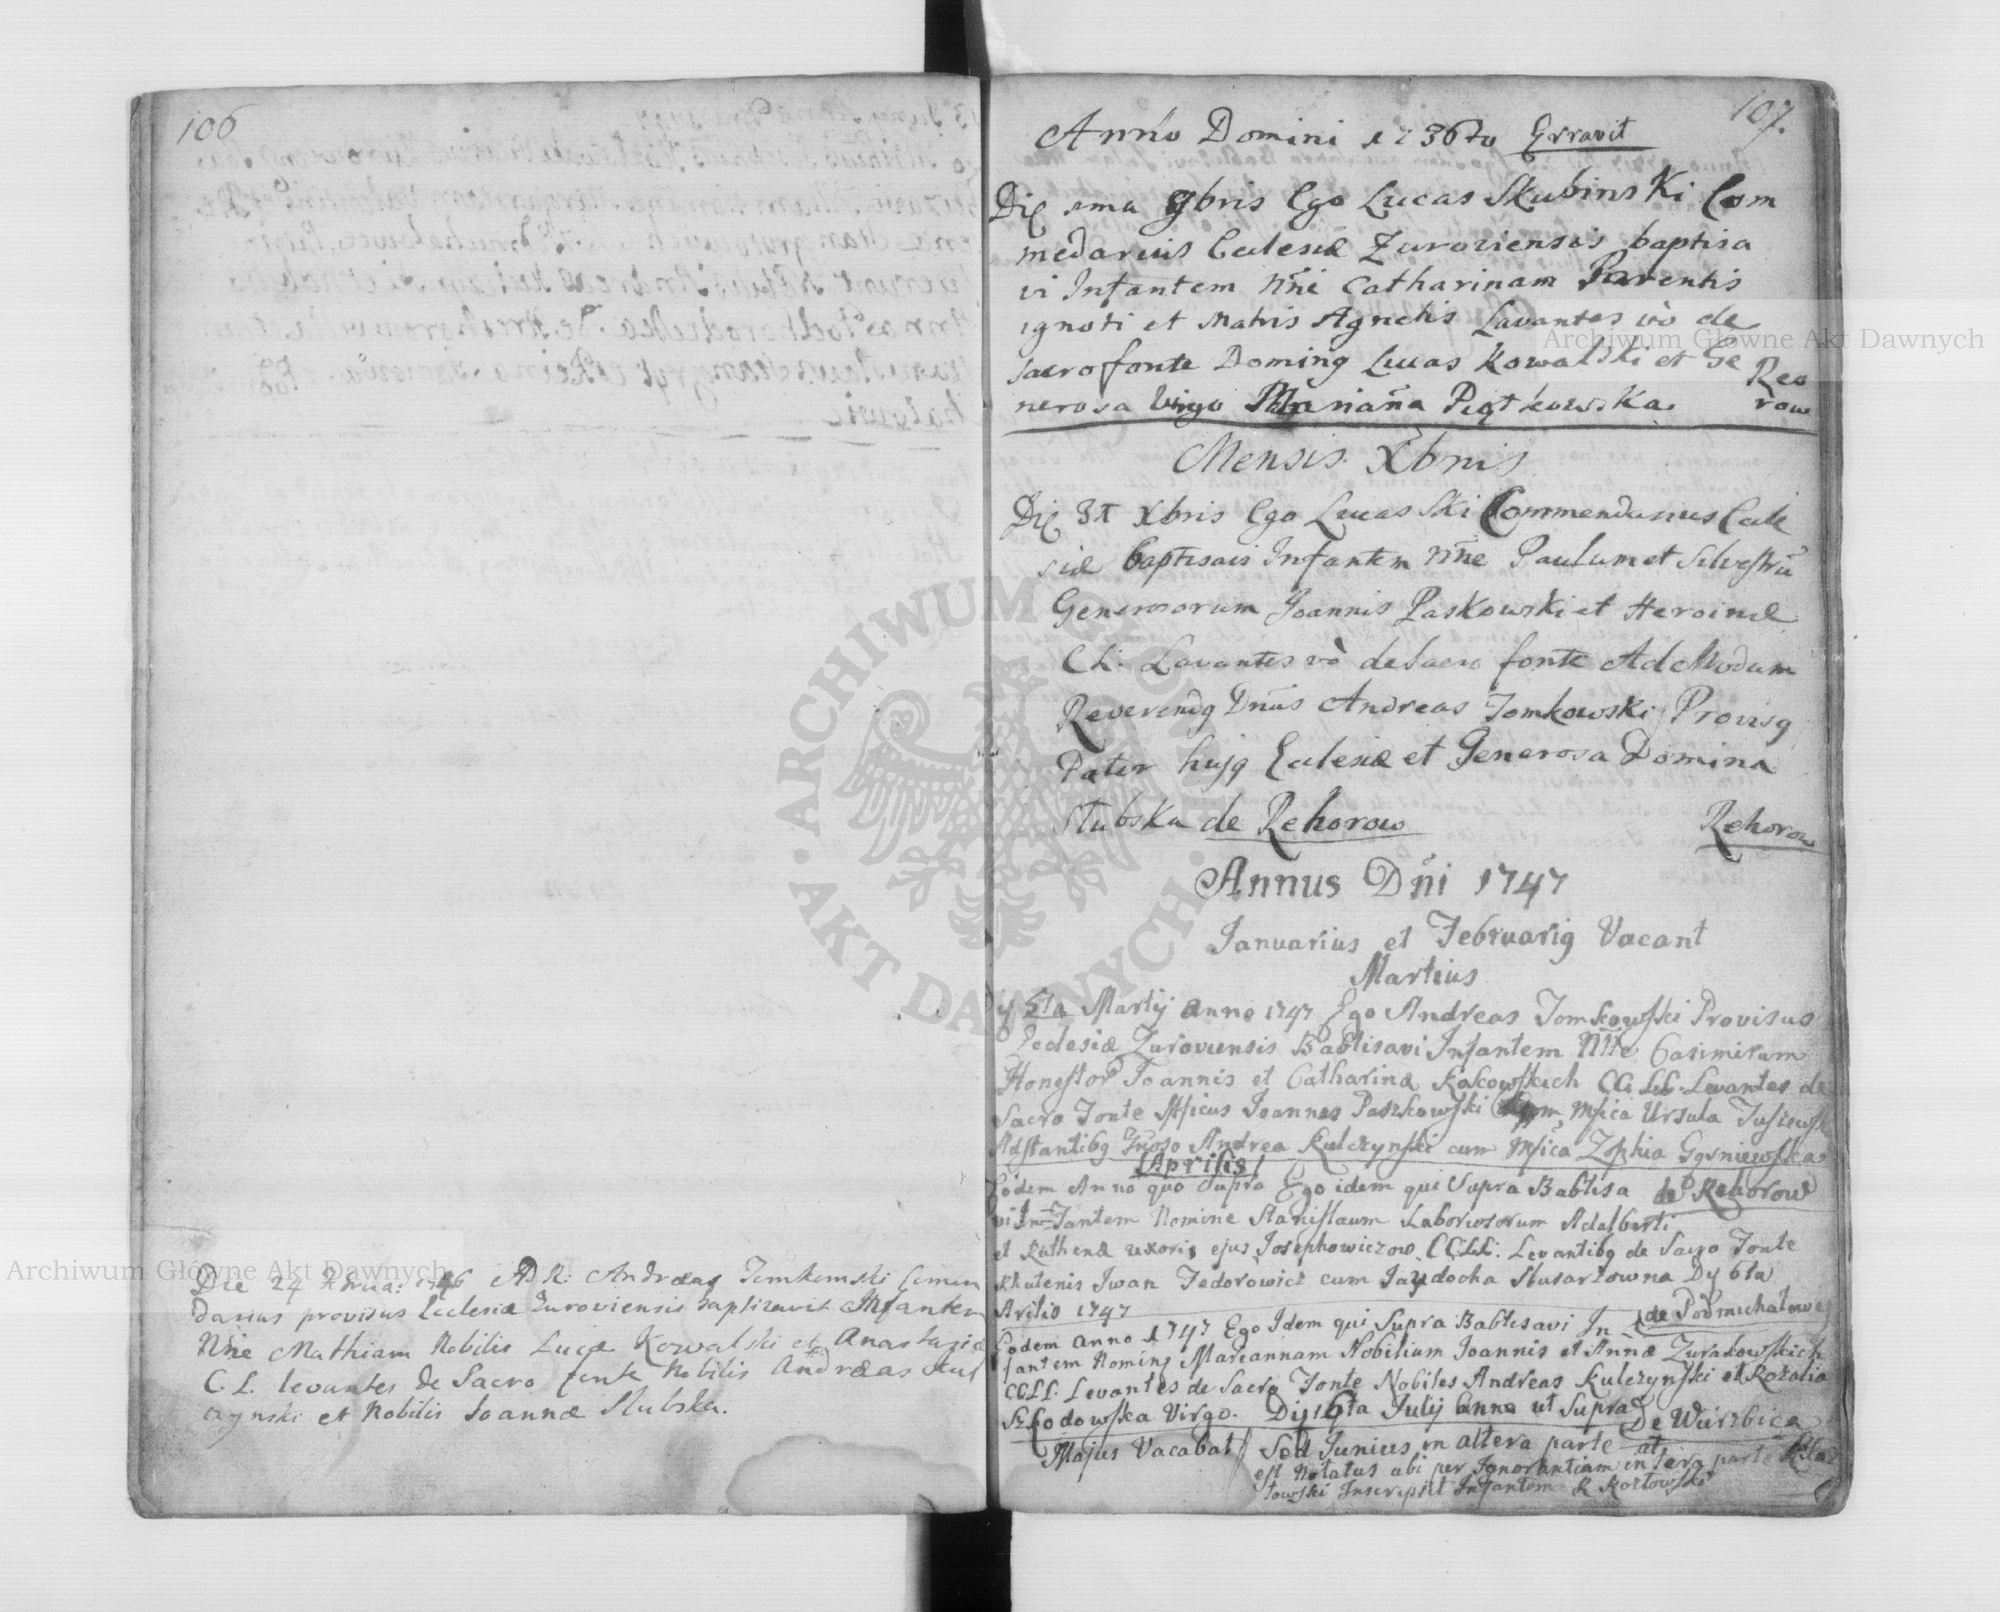 106
Die 24 1746 ADR: Andreas Tomkowski Comen
darius provisus Ecclesiæ Zuroviensis baptizavit Infantem
Nñe Mathiam Nobilis Lucæ Kowalski et Anastasiæ
C. L. levantes de Sacro fonte Nobilis Andræas Kul
czynski et Nobilis Joannæ Slubska.
107.
Anno Domini 1736to Erravit
Die 1ma 9bris Ego Lucas Skubinski Com
medarius Eclesiæ Zuroviensis baptisa
vi Infantem Nñe Catharinam Parentis
ignoti et Matris Agnetis Lavantes vò de
sacro fonte Doming Lucas Kowalski et Ge
nerosa Virgo Marianña Piątkowska
Reo
row
Mensis Xbris
Die 31 Xbris Ego Lucas Ski Commendarius Ecle
siæ baptisavi Infantem Nñe Paulum et Silvestrũ
Generosorum Joannis Paskowski et Heroinæ
C L. Lavantes vò de Sacro fonte Ad Modum
Reverendg Dnũs Andreas Tomkowski Provisg
Pater hujg Eclesiæ et Generosa Domina
Slubska de Rehorow
Rehorow
Annus Dñi 1747
Januarius et Februarig Vacant
Martius
Dy 5ta Martij Anno 1747 Ego Andreas Tomkowski Provisus
Eclesiæ Zuroviensis Babtisavi Infantem Nñe Casimirum
Honestor Joannis et Catharinæ Kakowskich CC. LL. Levantes de
Sacro Fonte Mficus Joannes Paszkowski cum Mfica Ursula
Adstantibg Gñoso Andrea Kulczynski cum Mfica Zophia
Aprilis
Eodem Anno quo Supra Ego idem qui Supra Babtisa de Rehorow
vi Infantem Nomine Stanislaum Laboriosorum Adalberti
et Ruthenæ uxoris ejus Josephowiczow CCLL. Levantibg de Sacro Fonte
Rhutenis Iwan Fedorowicz cum Jaydocha Slusarzowna Dy 6ta
Arilis 1747
de Podmichałowe
Eodem anno 1747 Ego Idem qui Supra Babtisavi In
fantem Noming Mareannam Nobilium Joannis et Annæ Zurakowskich
CCLL. Levantes de Sacro Fonte Nobiles Andreas Kulczynski et Rozalia
Virgo. Dy 16ta Julij Anno ut Supra De Wirzbica
Majus Vacabat Sed Junius in altera parte
est Notatus ubi per Ignorantiam in parte
Inscripsit Infantem R Kozłowski
Archiwum Główne Akt Dawnych
Archiwum Główne Akt Dawnych
ARCHIWUM GŁÓWNE · AKT DAWNYCH ·